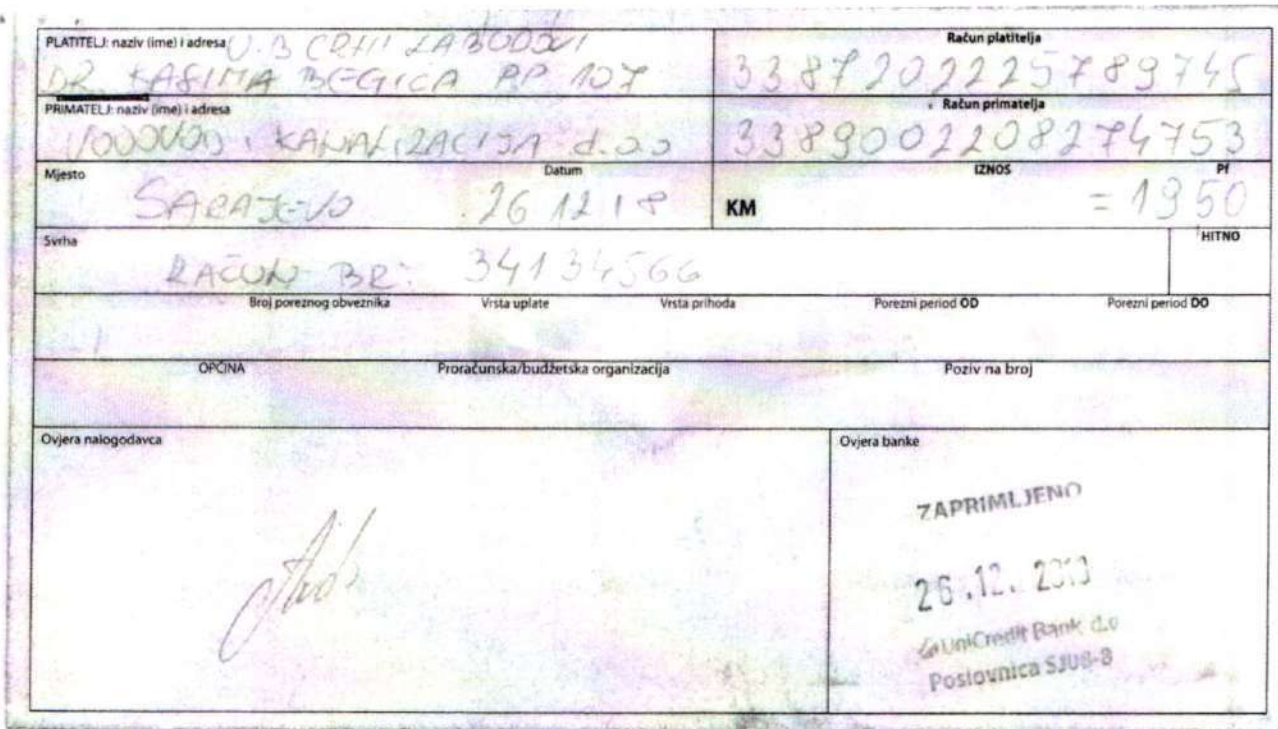 PLATITELJ: naziv (ime) i adresa U.B CRNI LABUDOVI
DR KASIMA BEGIĆA PP 107
Račun platitelja
3387202225789745
PRIMATELJ: naziv (ime) i adresa
VODOVOD i KANALIZACIJA d.o.o
Račun primatelja
3389002208274753
Mjesto Datum
SARAJEVO 26 12 18
IZNOS Pf
KM =1950
Svrha
HITNO
RAČUN BR: 34134566
Broj poreznog obveznika Vrsta uplate Vrsta prihoda Porezni period OD Porezni period DO
OPĆINA Proračunska/budžetska organizacija Poziv na broj
Ovjera nalogodavca
Ovjera banke
ZAPRIMLJENO
26.12.
UniCredit Bank d.d
Poslovnica SJU8-8